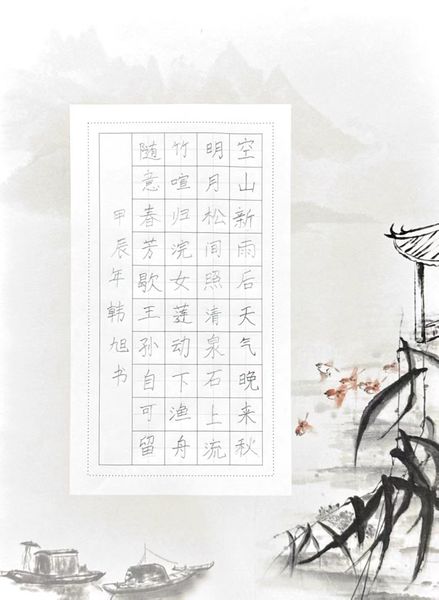 空山新雨后天气晚来秋
明月松间照清泉石上流
竹喧归浣女莲动下渔舟
随意春芳歇王孙自可留
甲辰年韩旭书